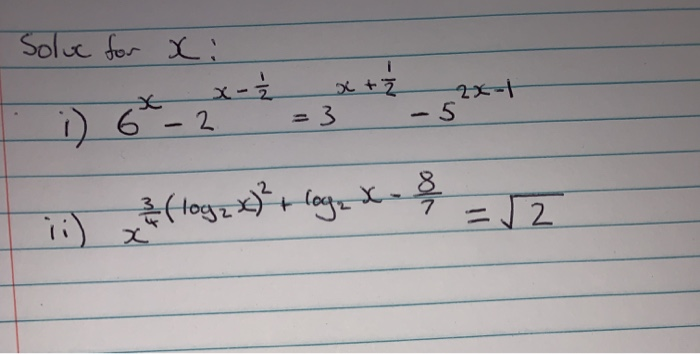 Solve for x:
i) 6^x - 2^{x - 1/2} = 3^{x + 1/2} - 5^{2x-1}
ii) x^{3/4 (log₂x)² + log₂ x - 8/7} = √2